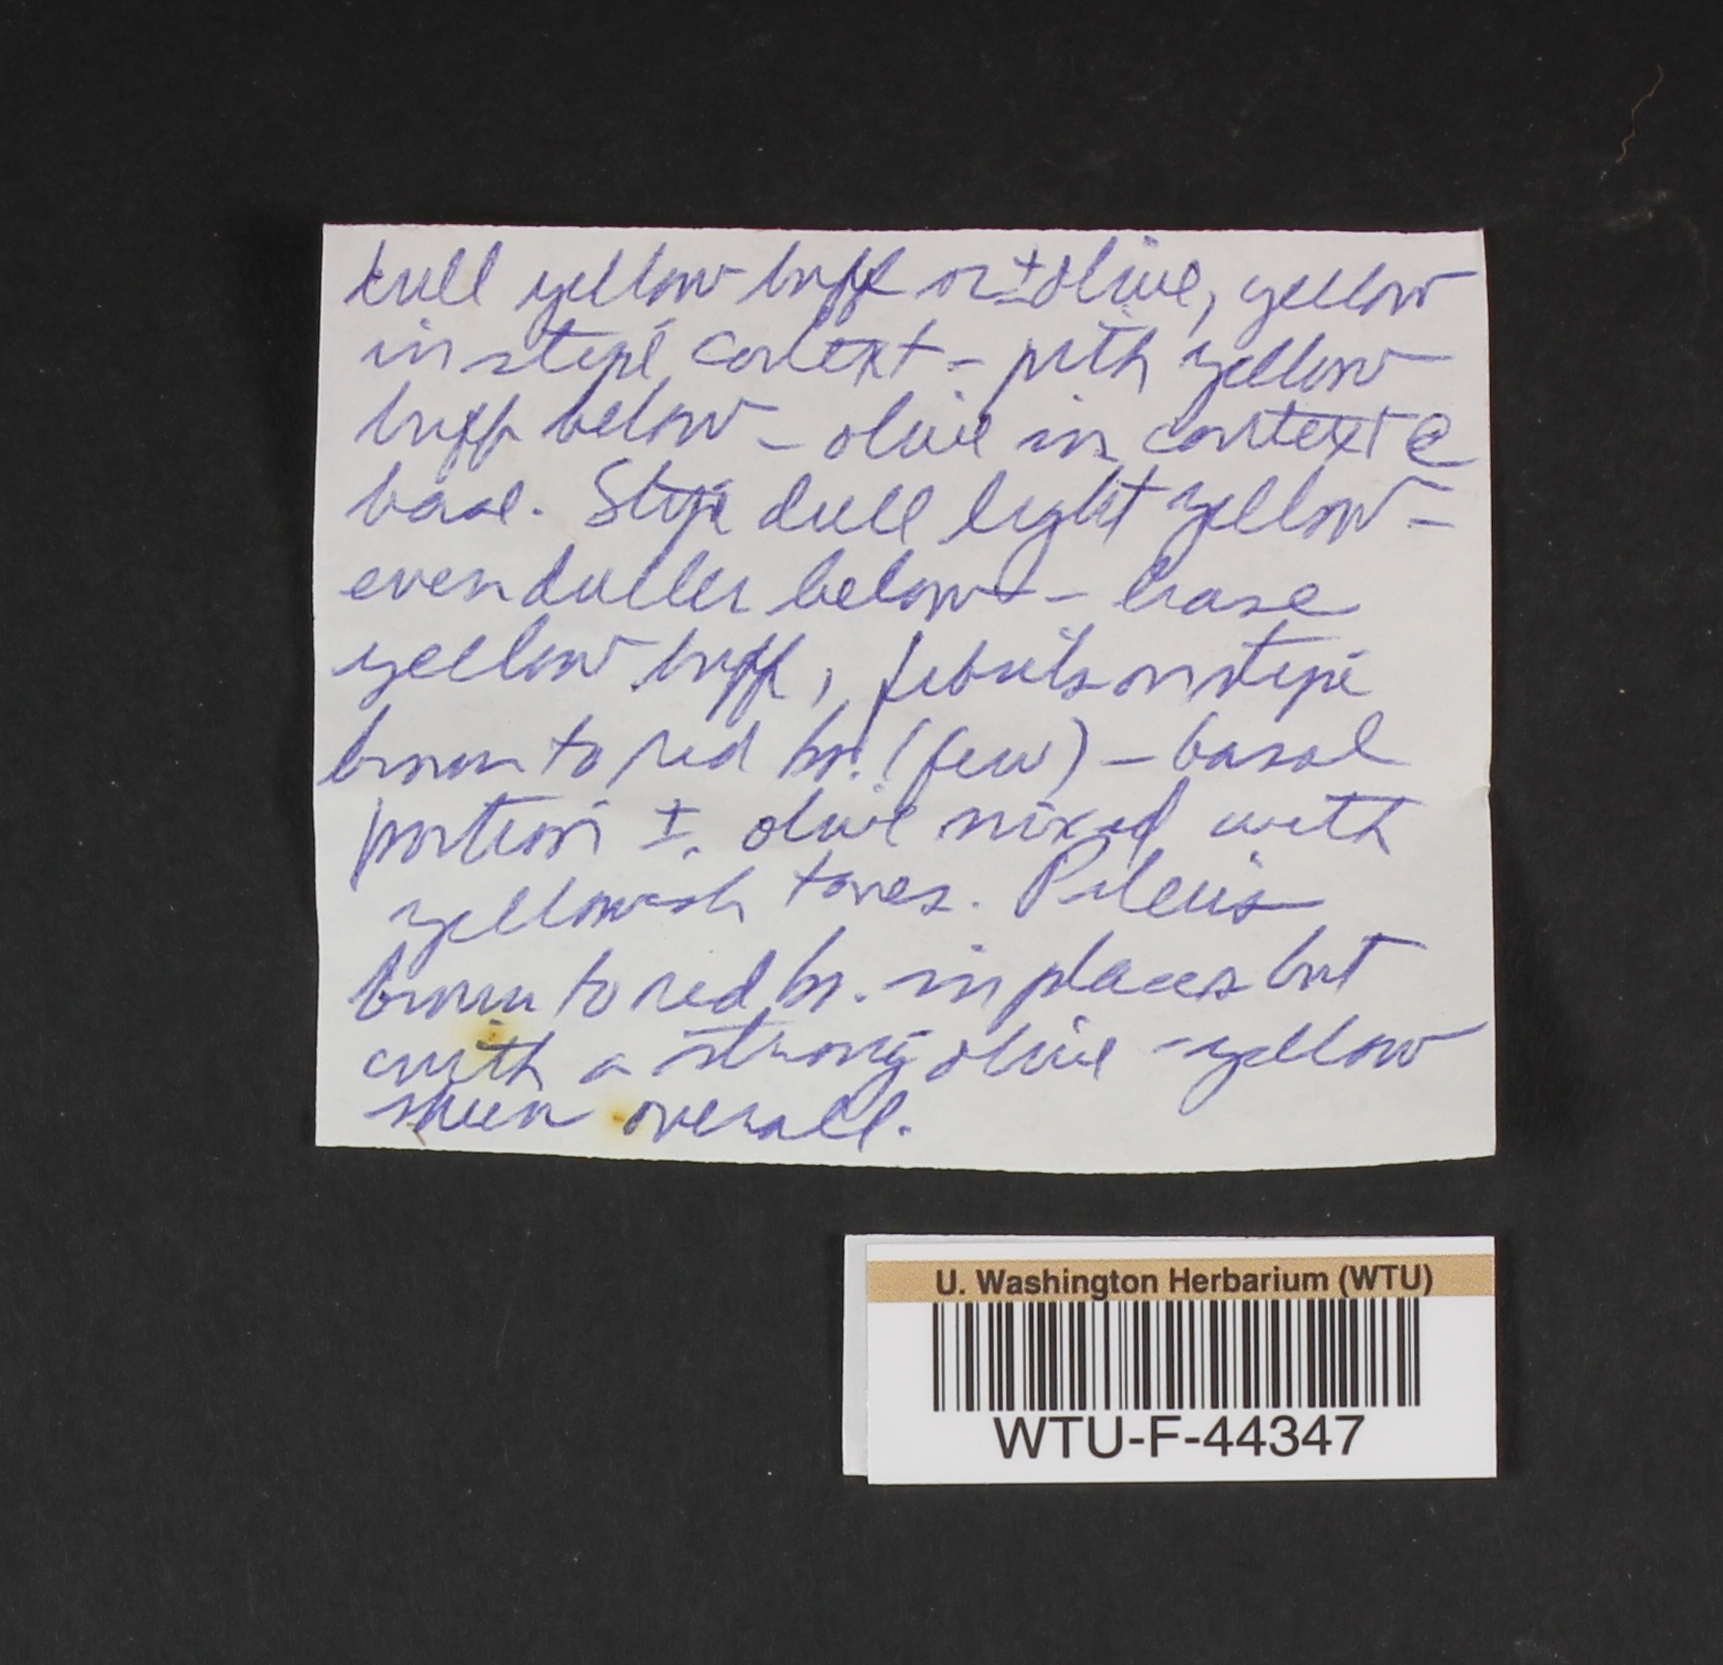 dull yellow buff or ± olive, yellow
in stipe context - pith yellow
buff below - olive in context @
base. Stipe dull light yellow -
even duller below - base
yellow buff, fibrils on stipe
brown to red br. (few) - basal
portion ±. olive mixed with
yellowish tones. Pileus
brown to red br. in places but
with a strong olive - yellow
sheen overall.
U. Washington Herbarium (WTU)
WTU-F-44347